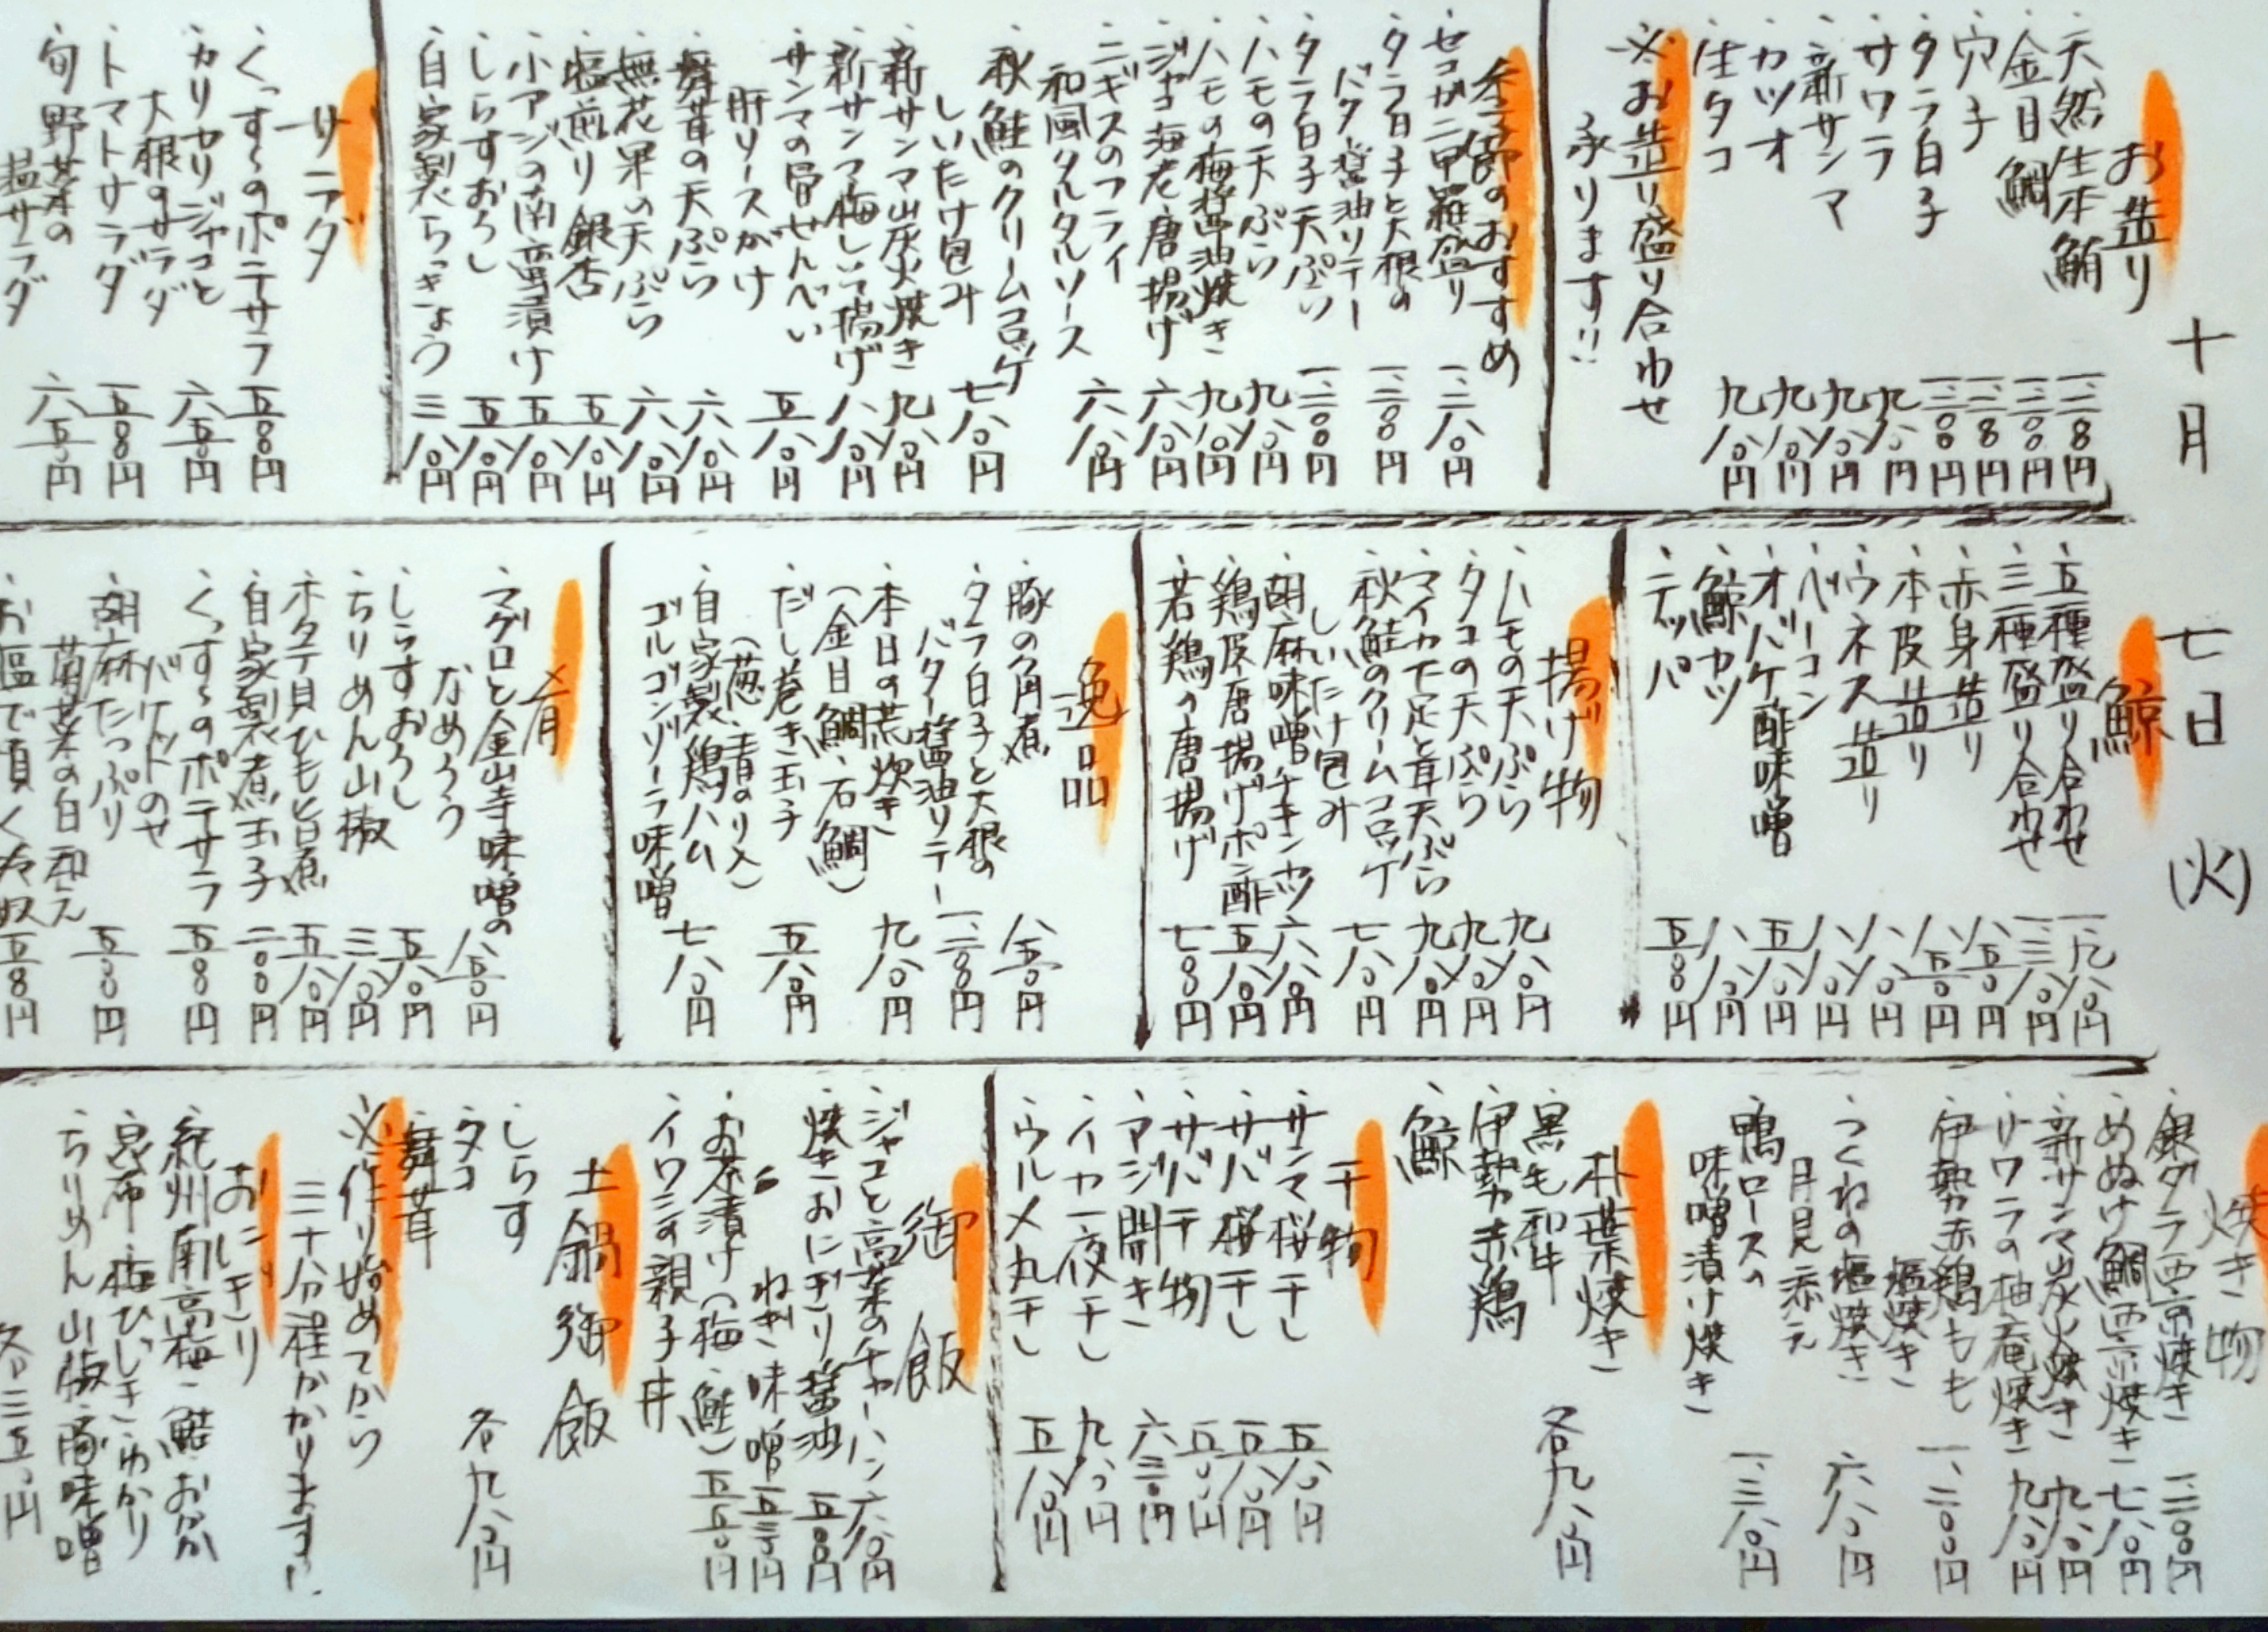 十月 七日 (火)
お造り
・天然生本鮪 一、二八〇円
・金目鯛 一、二〇〇円
・穴子 一、二八〇円
・タラ白子 一、二〇〇円
・サワラ 九八〇円
・新サンマ 九八〇円
・カツオ 九八〇円
・生タコ 九八〇円
※お造り盛り合わせ
承ります!!
季節のおすすめ
・セコガニ甲羅盛り 一、二八〇円
・タラ白子と大根の
バター醤油ソテー 一、二〇〇円
・タラ白子天ぷら 一、二〇〇円
・ハモの天ぷら 九八〇円
・ハモの梅醤油焼き 九八〇円
・ジャコ海老唐揚げ 六八〇円
・ニギスのフライ
和風タルタルソース 六八〇円
・秋鮭のクリームコロッケ
しいたけ包み 七八〇円
・新サンマ炭火焼き 九八〇円
・新サンマ梅しそ揚げ 八八〇円
・サンマの骨せんべい
肝ソースがけ 五八〇円
・舞茸の天ぷら 六八〇円
・無花果の天ぷら 六八〇円
・塩煎り銀杏 五八〇円
・小アジの南蛮漬け 五八〇円
・しらすおろし 五八〇円
・自家製らっきょう 三八〇円
サラダ
・くっすーのポテサラ 五八〇円
・カリカリジャコと
大根のサラダ 六五〇円
・トマトサラダ 五八〇円
・旬野菜の
温サラダ 六五〇円
鯨
・五種盛り合わせ 一、九八〇円
・三種盛り合わせ 一、三八〇円
・赤身造り 八五〇円
・本皮造り 八五〇円
・ウネス造り 八八〇円
・ベーコン 八八〇円
・オバケ酢味噌 五八〇円
・鯨カツ 八八〇円
・テッパ 五八〇円
揚げ物
・ハモの天ぷら 九八〇円
・タコの天ぷら 九八〇円
・マイカ下足と茸天ぷら 九八〇円
・秋鮭のクリームコロッケ
しいたけ包み 七八〇円
・胡麻味噌チキンカツ 六八〇円
・鶏皮唐揚げポン酢 五八〇円
・若鶏の唐揚げ 七〇〇円
逸品
・豚の角煮 八五〇円
・タラ白子と大根の
バター醤油ソテー 一、二〇〇円
・本日の荒炊き
(金目鯛、石鯛) 九八〇円
・だし巻き玉子
(葱、青のり入) 五八〇円
・自家製鶏ハム
ゴルゴンゾーラ味噌 七八〇円
肴
・マグロと金山寺味噌の
なめろう 八五〇円
・しらすおろし 五八〇円
・ちりめん山椒 三八〇円
・ホタテ貝ひも旨煮 五八〇円
・自家製煮玉子 二〇〇円
・くっすーのポテサラ
バケットのせ 五八〇円
・胡麻たっぷり
菊菜の白和え 五五〇円
・お塩で頂く冷奴 五五〇円
焼き物
・銀ダラ西京焼き 一、二〇〇円
・めぬけ鯛西京焼き 七八〇円
・新サンマ炭火焼き 九八〇円
・サワラの柚庵焼き 九八〇円
・伊勢赤鶏もも
塩焼き 一、二〇〇円
・つくねの塩焼き
月見添え 六八〇円
・鴨ロースの
味噌漬け焼き 一、三八〇円
朴葉焼き
・黒毛和牛
・伊勢赤鶏
・鯨
各九八〇円
干物
・サンマ桜干し 五八〇円
・サバ桜干し 五八〇円
・サバ干物
・アジ開き 六三〇円
・イカ一夜干し 九八〇円
・ウルメ丸干し 五八〇円
御飯
・ジャコと高菜のチャーハン 六八〇円
・焼きおにぎり醤油 五〇〇円
〃 ねぎ味噌 五三〇円
・お茶漬け(梅、鮭) 五五〇円
・イワシの親子丼
土鍋御飯
・しらす
・タコ
・舞茸
各九八〇円
※作り始めてから
三十分程かかります!!
おにぎり
・紀州南高梅・鮭・おかか
・昆布・梅ひじき・ゆかり
・ちりめん山椒・豚味噌
各二三五円